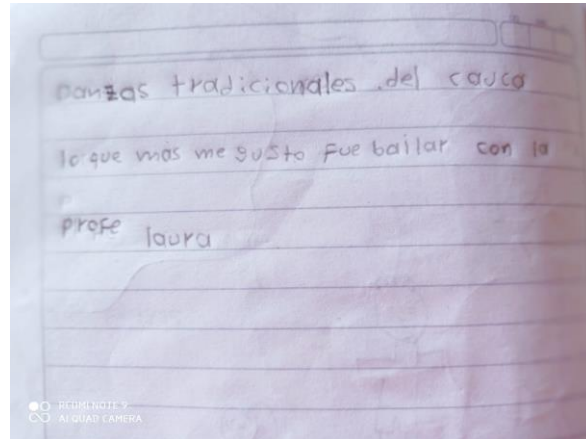 Danzas tradicionales .del cauca
lo que más me gusto fue bailar con la
profe laura
REDMI NOTE 9
AI QUAD CAMERA